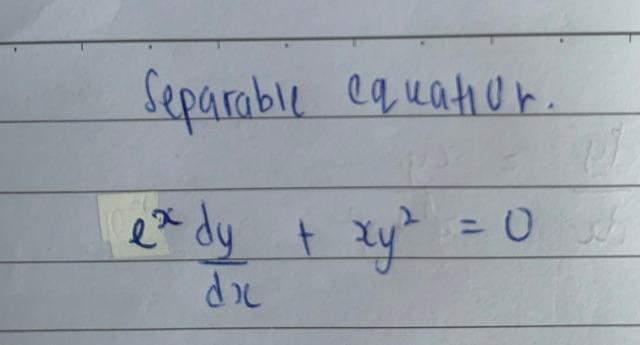 Separable equation.
e^x dy/dx + xy² = 0